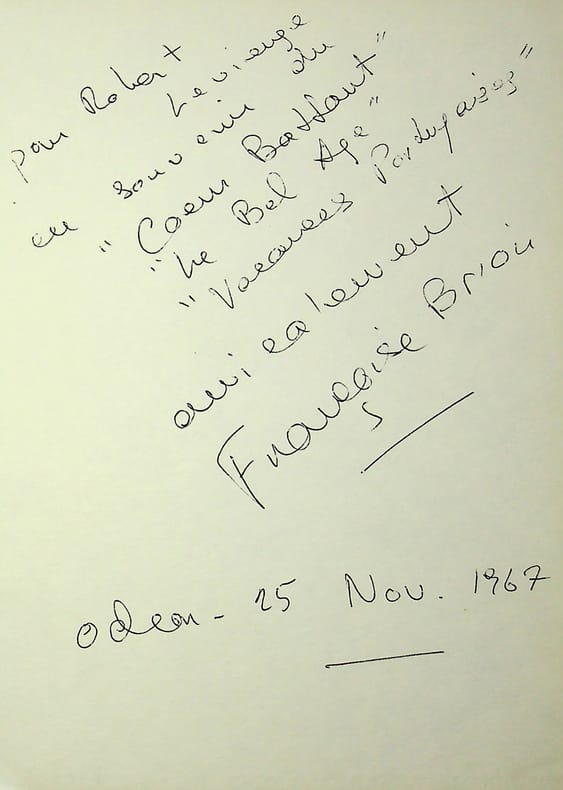 pour Robert
Levienge
en souvenir du
"Coeur Battant"
"Le Bel Age"
"Vacances Portugaises"
amicalement
Françoise Brion
Odéon - 25 Nov. 1967